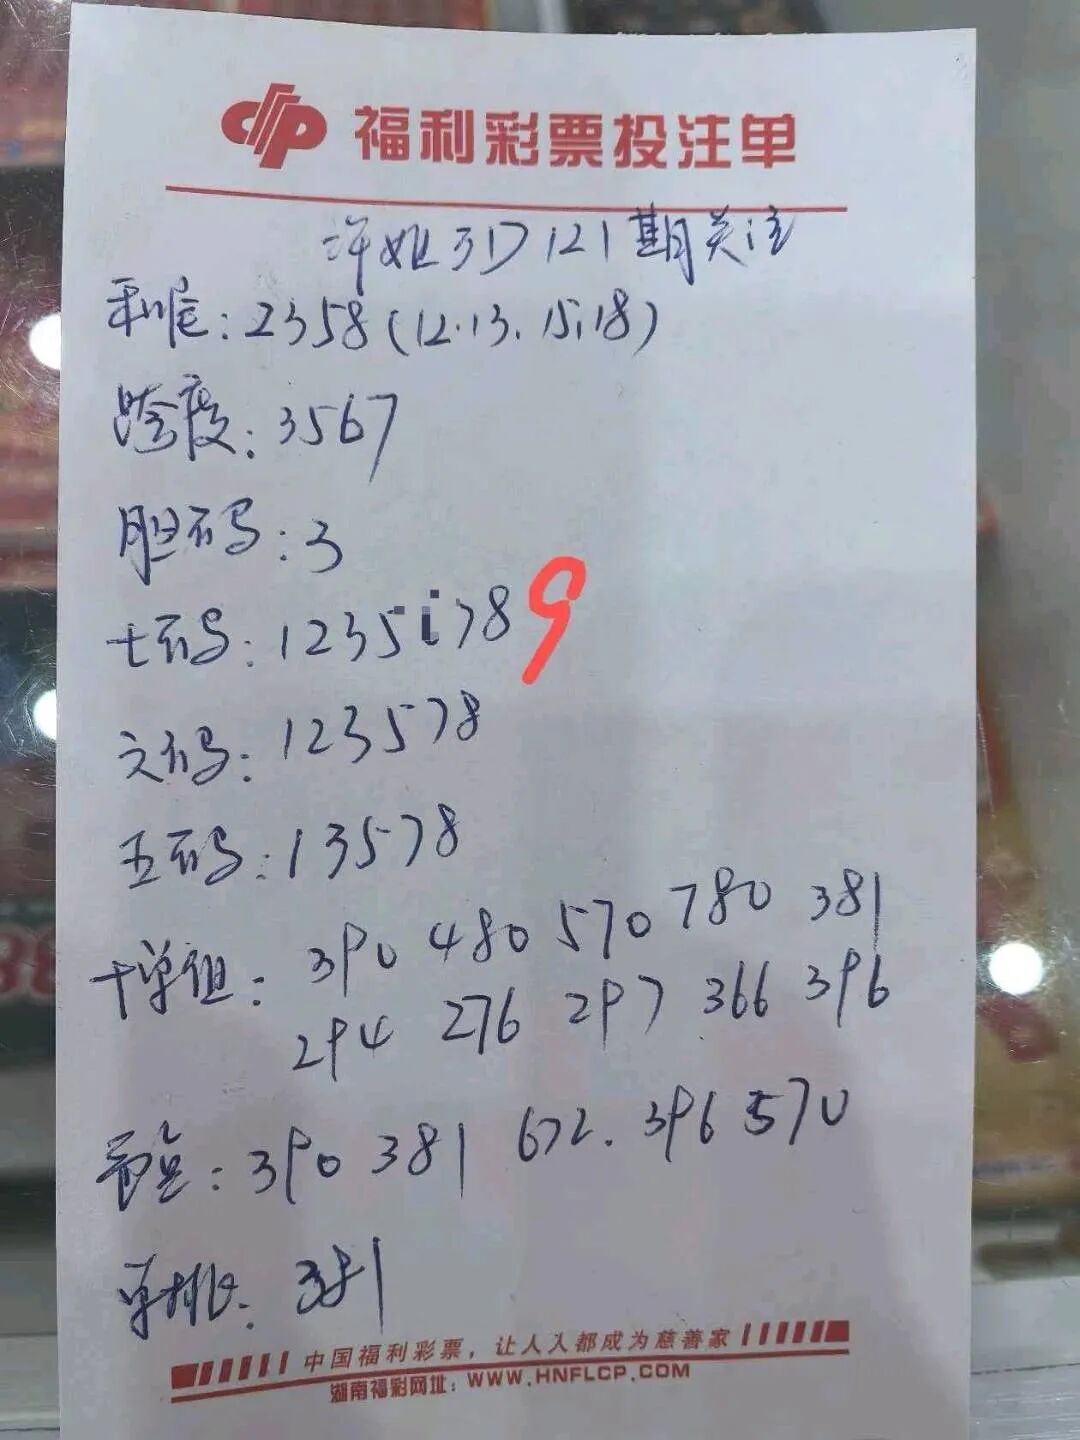 福利彩票投注单
洋姐3D121期关注
和尾:2358(12.13.15.18)
跨度:3567
胆码:3
七码:1235 789
六码:123578
五码:13578
十单组:390 480 570 780 381
294 276 297 366 396
直:390 381 672.396 570
单挑:381
中国福利彩票,让人人都成为慈善家
湖南福彩网址:WWW.HNFLCP.COM